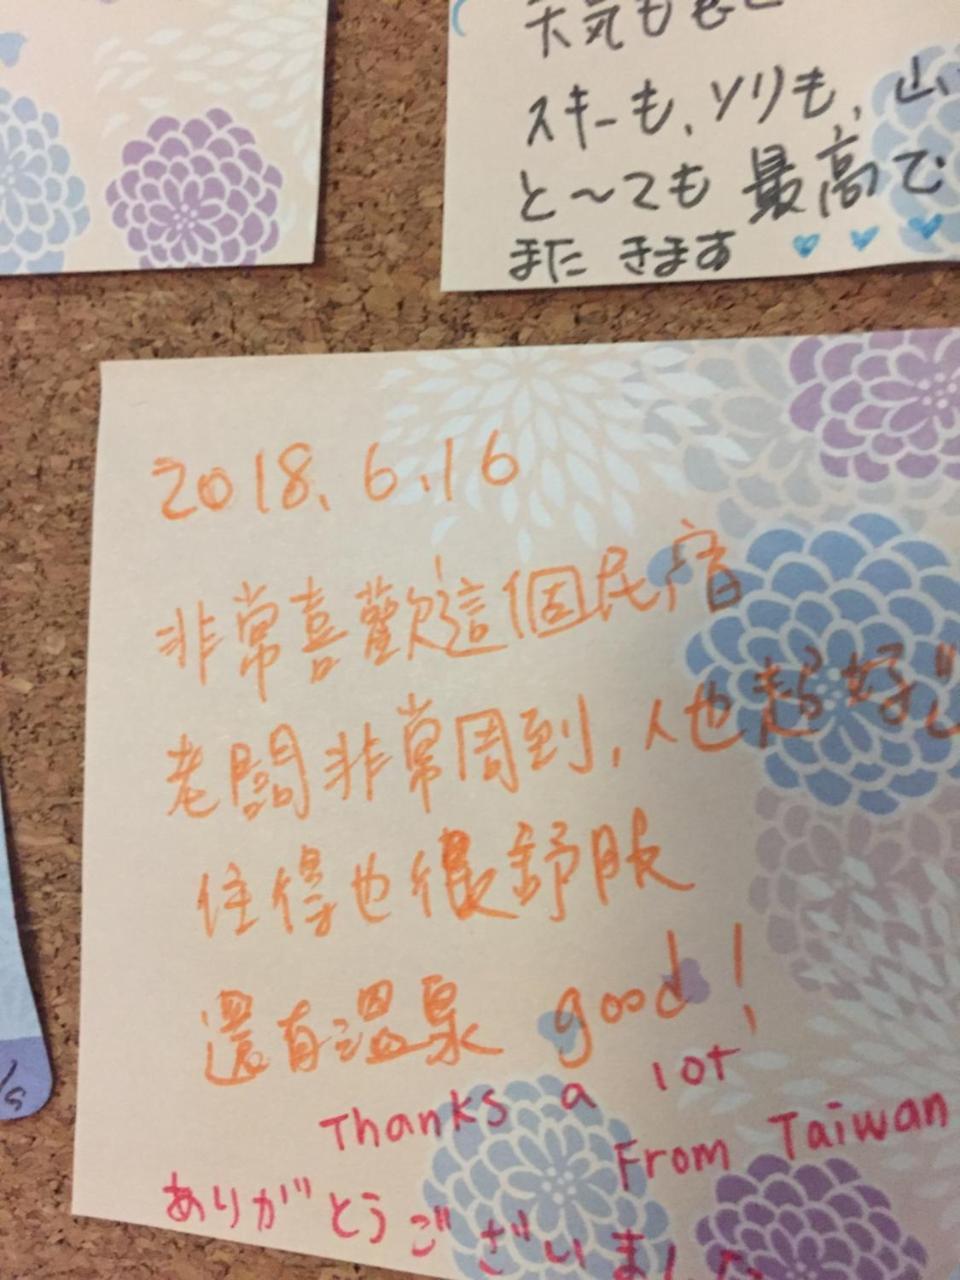 天気も
スキーも、ソリも、山
と〜ても最高で
また きます
2018.6.16
非常喜歡這個民宿
老闆非常周到,人也超好
住得也很舒服
還有溫泉 good!
Thanks a lot
From Taiwan
ありがとうございました